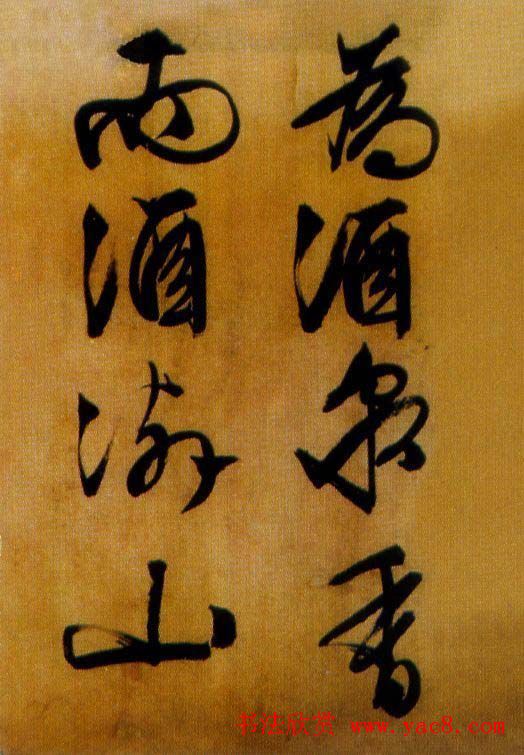 為酒泉香
而酒洌山
书法欣赏 www.yac8.com